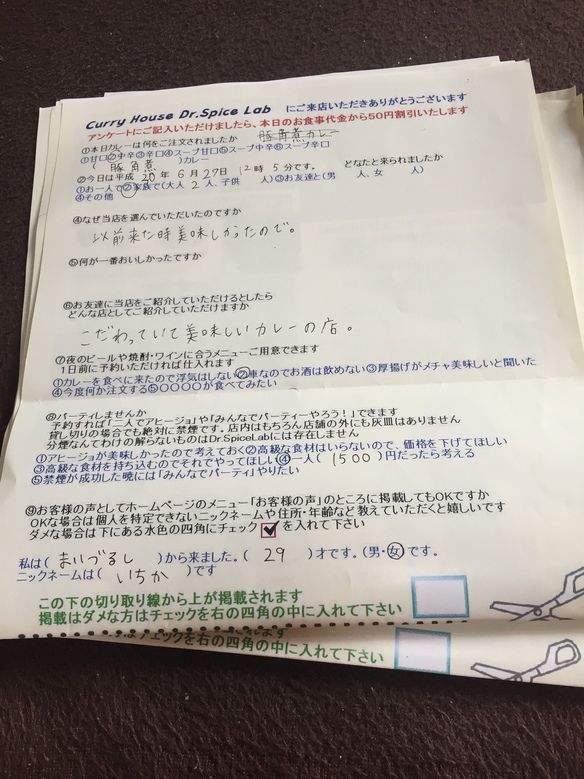 Curry House Dr.Spice Lab にご来店いただきありがとうございます
アンケートにご記入いただけましたら、本日のお食事代金から50円割引いたします
①本日カレーは何をご注文されましたか 豚角煮カレー
①甘口②中辛③辛口④スープ甘口⑤スープ中辛⑥スープ辛口
( 豚角煮 )カレー
②今日は平成 20 年 6 月 27日 12時 5分です。 どなたと来られましたか
①お一人で②家族で(大人 2 人、子供 人)③お友達と(男 人、女 人)
④その他
④なぜ当店を選んでいただいたのですか
以前来た時美味しかったので。
⑤何が一番おいしかったですか
⑥お友達に当店をご紹介していただけるとしたら
どんな店としてご紹介していただけますか
こだわっていて美味しいカレーの店。
⑦夜のビールや焼酎・ワインに合うメニューご用意できます
1日前に予約いただければ仕入れます
①カレーを食べに来たので浮気はしない②車なのでお酒は飲めない③厚揚げがメチャ美味しいと聞いた
④今度何か注文する⑤〇〇〇〇が食べてみたい
⑧パーティしませんか
予約すれば「二人でアヒージョ」や「みんなでパーティーやろう!」できます
貸し切りの場合でも絶対に禁煙です。店内はもちろん店舗の外にも灰皿はありません
分煙なんてわけの解らないものはDr.SpiceLabには存在しません
①アヒージョが美味しかったので考えておく②高級な食材はいらないので、価格を下げてほしい
③高級な食材を持ち込むのでそれでやってほしい④一人( 1500 )円だったら考える
⑤禁煙が成功した暁には「みんなでパーティ」やりたい
⑨お客様の声としてホームページのメニュー「お客様の声」のところに掲載してもOKですか
OKな場合は個人を特定できないニックネームや住所・年齢など教えていただくと嬉しいです
ダメな場合は下にある水色の四角にチェック ✓ を入れて下さい
私は( まいづるし )から来ました。( 29 )才です。(男・女)です。
ニックネームは( いちか )です
この下の切り取り線から上が掲載されます
掲載はダメな方はチェックを右の四角の中に入れて下さい
はチェックを右の四角の中に入れて下さい